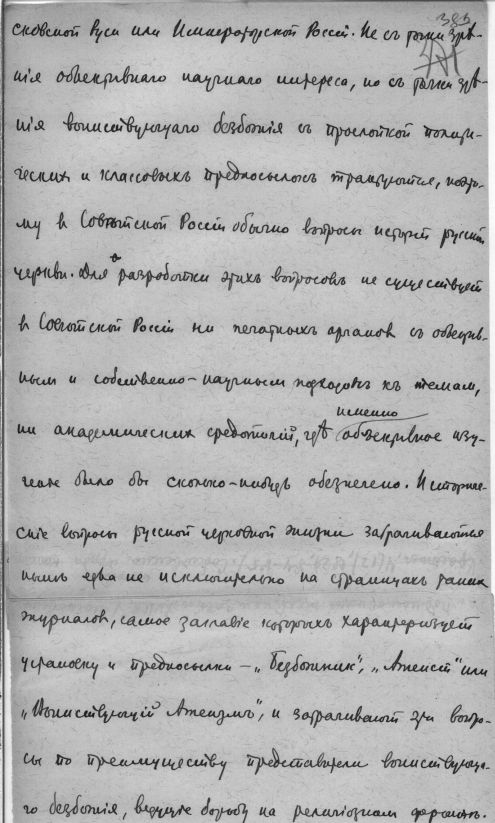 385
сковской Руси или Императорской России. Не съ точки зрѣ-
нія объективнаго научнаго интереса, но съ точки зрѣ-
нія воинствующаго безбожія съ прослойкой полити-
ческихъ и классовыхъ предпосылокъ трактуются, пото-
му в Совѣтской Россіи обычно вопросы исторіи русской
церкви. Для разработки этихъ вопросовъ не существуетъ
в Совѣтской Россіи ни печатныхъ органовъ съ объектив-
нымъ и собственно-научнымъ подходомъ къ темамъ,
именно
ни академическихъ средоточій, гдѣ объективное изу-
чение было бы сколько-нибудь обезпечено. Историче-
скіе вопросы русской церковной жизни затрагиваются
нынѣ едва не исключительно на страницахъ такихъ
журналов, самое заглавіе которыхъ характеризуетъ
установку и предпосылки – „Безбожник", „Атеист" или
„Воинствующій Атеизмъ", и затрагиваютъ эти вопро-
сы по преимуществу представители воинствующа-
го безбожія, ведущіе борьбу на религіозномъ фронтѣ.